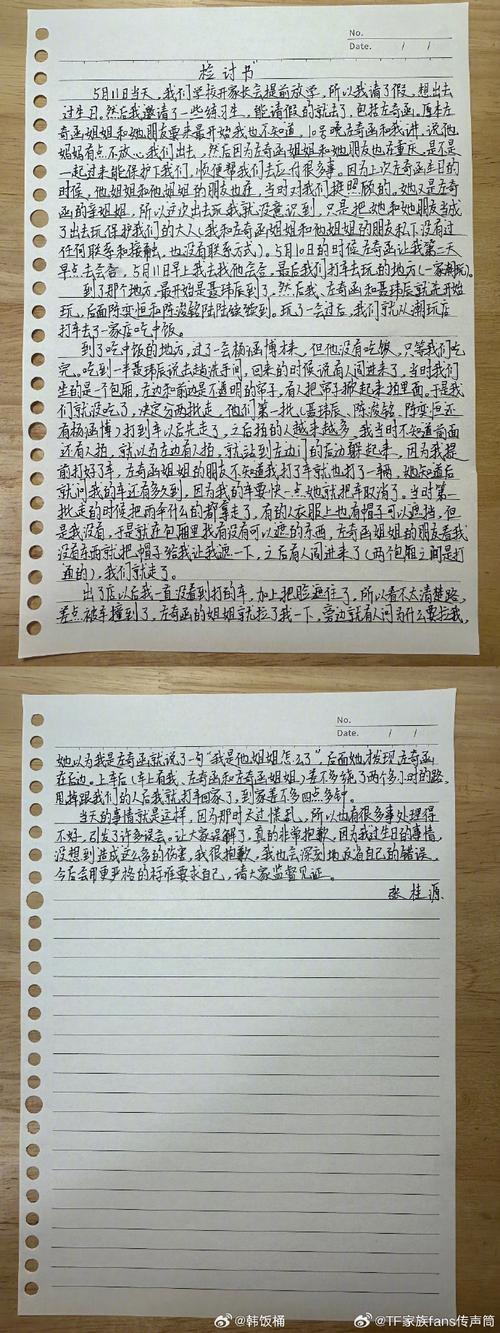 No.
Date. / /
检讨书
5月11日当天，我们学校开家长会提前放学，所以我请了假，想出去
过生日。然后我邀请了一些练习生，能请假的就去了，包括左奇函。原本左
奇函姐姐和她朋友要来最开始我也不知道，10号晚左奇函和我讲，说他
妈妈有点不放心我们出去，然后因为左奇函姐姐和她朋友也在重庆，是不是
一起过来能保护下我们，顺便帮我们去应付很多事。因为上次左奇函生日的
时候，他姐姐和他姐姐的朋友也在，当时对我们挺照顾的，她又是左奇
函的亲姐姐，所以这次出去玩我就没意识到，只是把她和她朋友当成
了出去玩保护我们的大人（我和左奇函姐姐和他姐姐的朋友私下没有过
任何联系和接触，也没有联系方式）。5月10日的时候左奇函让我第二天
早点去会合，5月11日早上我去找他会合，最后我们打车去玩的地方（一家潮玩）。
到了那个地方，最开始是聂玮辰到了，然后我、左奇函和聂玮辰就先开始
玩，后面陈奕恒和陈浚铭陆陆续续到。玩了一会过后，我们就从潮玩店
打车去了一家店吃中饭。
到了吃中饭的地方，过了一会杨涵博才来，但他没有吃饭，只等我们吃
完。吃到一半聂玮辰说出去趟洗手间，回来的时候说有人闯进来了，当时我们
坐的是个包厢，左边和前边是不透明的帘子，有人把帘子掀起来拍里面。于是我
们就没吃了，决定分两批走，他们第一批（聂玮辰、陈浚铭、陈奕恒还
有杨涵博）打到车以后先走了，之后拍的人越来越多，我当时不知道前面
还有人拍，就以为左边有人拍，就站到左边门的后边躲起来，因为我提
前打好了车，左奇函姐姐的朋友不知道我打了车就也打了一辆，她知道后
就问我的车还有多久到，因为我的车要快一点她就把车取消了，当时第一
批走的时候把雨伞什么的都拿走了，有的人衣服上也有帽子可以遮挡，但
是我没有，于是就在包厢里找有没有可以遮的东西，左奇函姐姐的朋友看我
没有东西就把帽子给我让我遮一下，之后有人闯进来了（两个包厢之间是打
通的），我们就走了。
出了店以后我一直没看到打的车，加上把脸遮住了，所以看不太清楚路，
差点被车撞到了，左奇函的姐姐就拉了我一下，旁边就有人问为什么要拉我，
No.
Date. / /
她以为我是左奇函就说了一句“我是他姐姐怎么了”，后面她才发现左奇函
在后边。上车后（车上有我、左奇函和左奇函姐姐）差不多绕了两个多小时的路，
甩掉跟我们的人后我就打车回家了，到家差不多四点多钟。
当天的事情就是这样，因为那时太慌乱，所以也有很多事处理得
不好，引发了许多误会。让大家误解了，真的非常抱歉，因为我过生日的事情，
没想到造成这么多的伤害，我很抱歉，我也会深刻地反省自己的错误，
今后会用更严格的标准要求自己，请大家监督见证。
张桂源
@韩饭桶
@TF家族fans传声筒